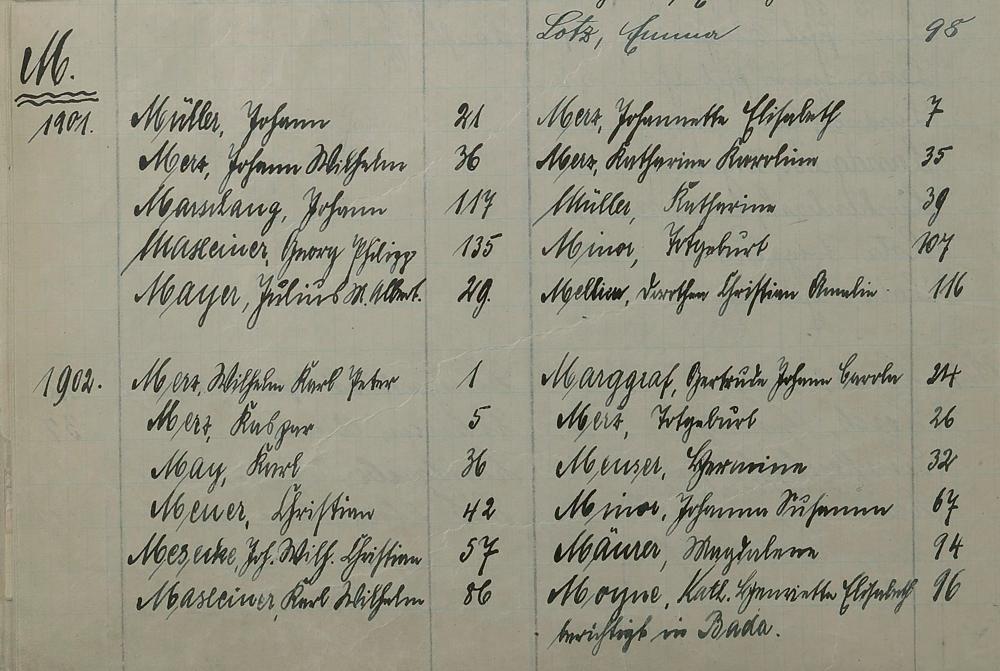 Lotz, Emma 98
M.
1901. Müller, Johann 21 Merz, Johannette Elisabeth 7
Merz, Johann Wilhelm 36 Merz, Katharine Karoline 35
Marschang, Johann 117 Müller, Katharine 39
Masseiner, Georg Philipp 135 Minor, Totgeburt 107
Mayer, Julius M. Albert. 29. Dorothea Christian Amalie 116
1902. Merz, Wilhelm Karl Peter 1 Marggraf, Gertrude Johann Carola 24
Merz, Kaspar 5 Merz, Totgeburt 26
May, Karl 36 Meuser, Hermine 32
Meuer, Christian 42 Minor, Johanna Susanna 67
Joh. Wilh. Christian 57 Mäurer, Magdalene 94
Masseiner, Karl Wilhelm 86 Moyne, Kath. Henriette Elisabeth 96
berichtigt in Bada.